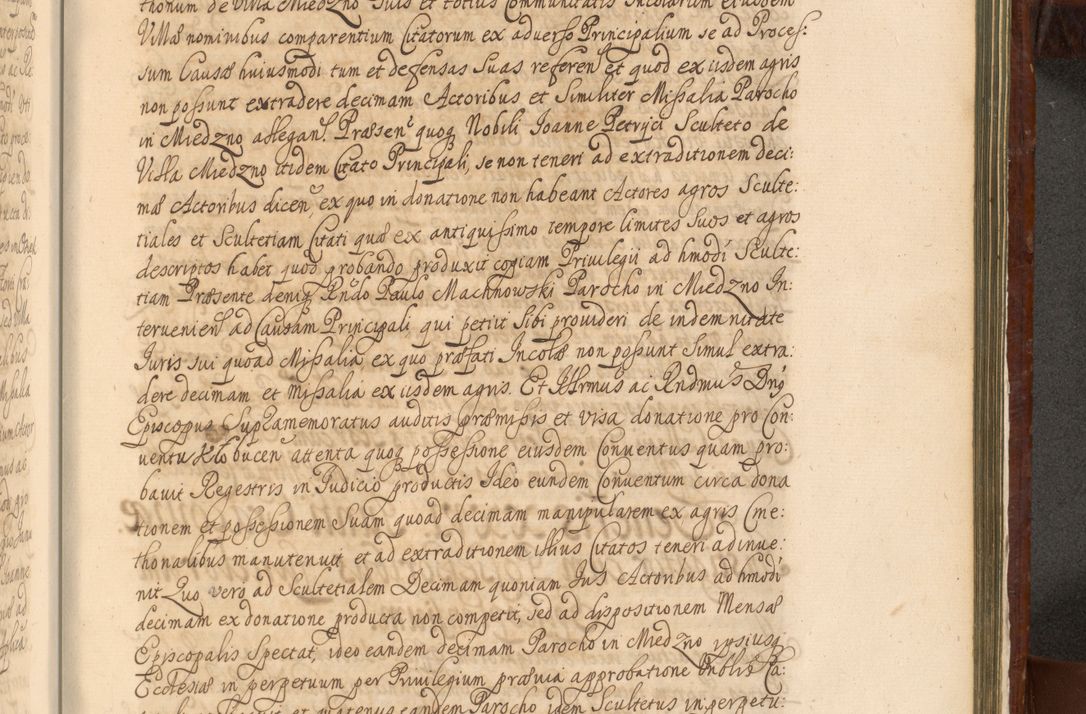 thonum de Villa Miedzno Suis et totius Communitatis Incolarum eiusdem
Villæ nominibus comparentium Citatorum ex adverso Principalium se ad Proces:
sum Causæ huiusmodi tum et defensas Suas referen̄ et quod ex iisdem agris
non possunt extradere decimam Actoribus et Similiter Missalia Parocho
in Miedzno allegan̄. Præsen̄ quoq Nobili Ioanne Petryci Sculteto de
Villa Miedzno itidem Citato Principali, se non teneri ad extraditionem deci:
mæ Actoribus dicen̄, ex quo in donatione non habeant Actores agros Sculte:
tiales et Scultetiam Citati quæ ex antiquissimo tempore limites Suos et agros
descriptos habet quod probando produxit copiam Privilegii ad hmodi Sculte:
tiam Præsente deniq Rndo Paulo Machnowski Parocho in Miedzno In:
tervenien̄ ad Causam Principali qui petiit Sibi provideri de indemnitate
Iuris sui quoad Missalia, ex quo præfati Incolæ non possunt Simul extra:
dere decimam et Missalia ex iisdem agris. Et Illrmus ac Rndmus Dn̄s
Episcopus Supramemoratus auditis præmissis et visa donatione pro Con:
ventu Kłobucen̄ attenta quoq possessione eiusdem Conventus quam pro:
bavit Regestris in Iudicio productis Ideo eundem Conventum circa dona
tionem et possessionem Suam quoad decimam manipularem ex agris Cme:
thonalibus manutenuit et ad extraditionem illius Citatos teneri adinve:
nit Quo vero ad Scultetialem Decimam quoniam Ius Actoribus ad hmodi
decimam ex donatione producta non competit, sed ad dispositionem Mensæ
Episcopalis Spectat, ideo eandem decimam Parocho in Miedzno ipsiusq
Ecclesiæ in perpetuum per Privilegium prævia approbatione Vnblis Ca:
eandem Parocho idem Scultetus in perpetu: